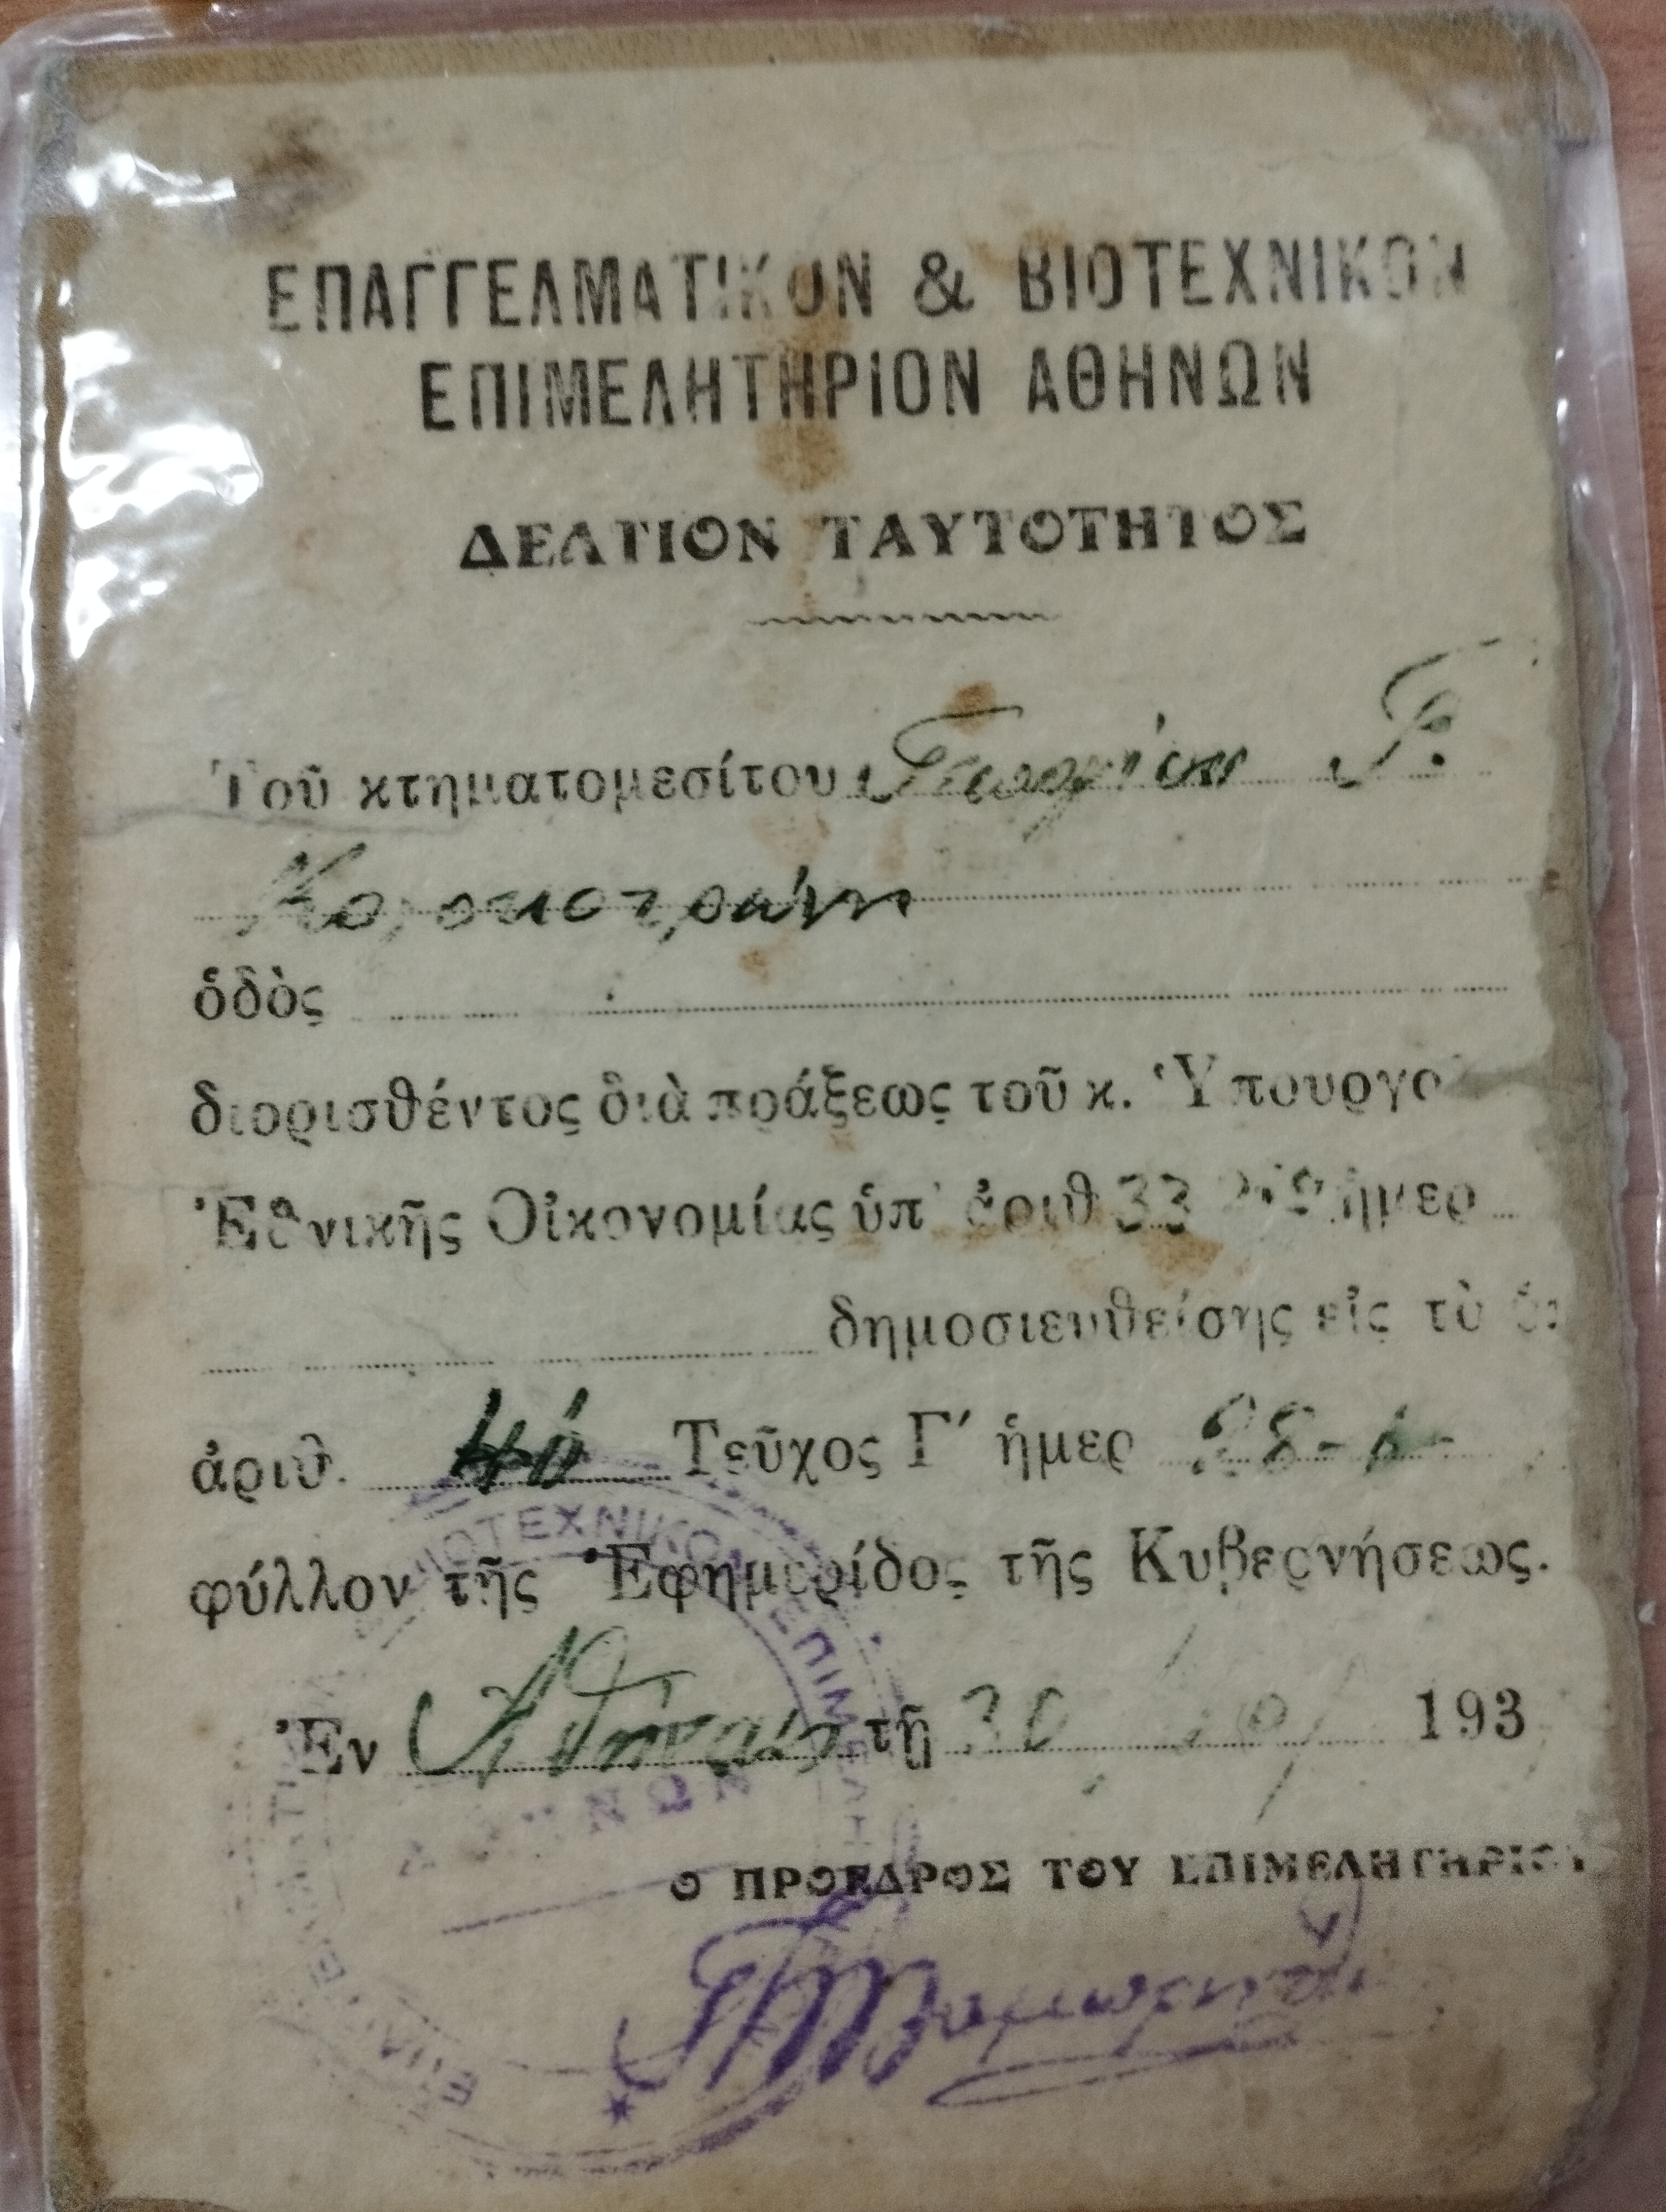 ΕΠΑΓΓΕΛΜΑΤΙΚΟΝ & ΒΙΟΤΕΧΝΙΚΟΝ
ΕΠΙΜΕΛΗΤΗΡΙΟΝ ΑΘΗΝΩΝ
ΔΕΛΤΙΟΝ ΤΑΥΤΟΤΗΤΟΣ
Τοῦ κτηματομεσίτου Γεωργίου Γ.
ὁδὸς
διορισθέντος διὰ πράξεως τοῦ κ. Ὑπουργο
Ἐθνικῆς Οἰκονομίας ὑπ' ἀριθ 33 ἡμερ
δημοσιευθείσης εἰς τὸ
ἀριθ. Τεῦχος Γ′ ἡμερ 28-
φύλλον τῆς Ἐφημερίδος τῆς Κυβερνήσεως.
Ἐν Ἀθήναις τῇ 30 193
Ο ΠΡΟΕΔΡΟΣ ΤΟΥ ΕΠΙΜΕΛΗΤΗΡΙΟΥ